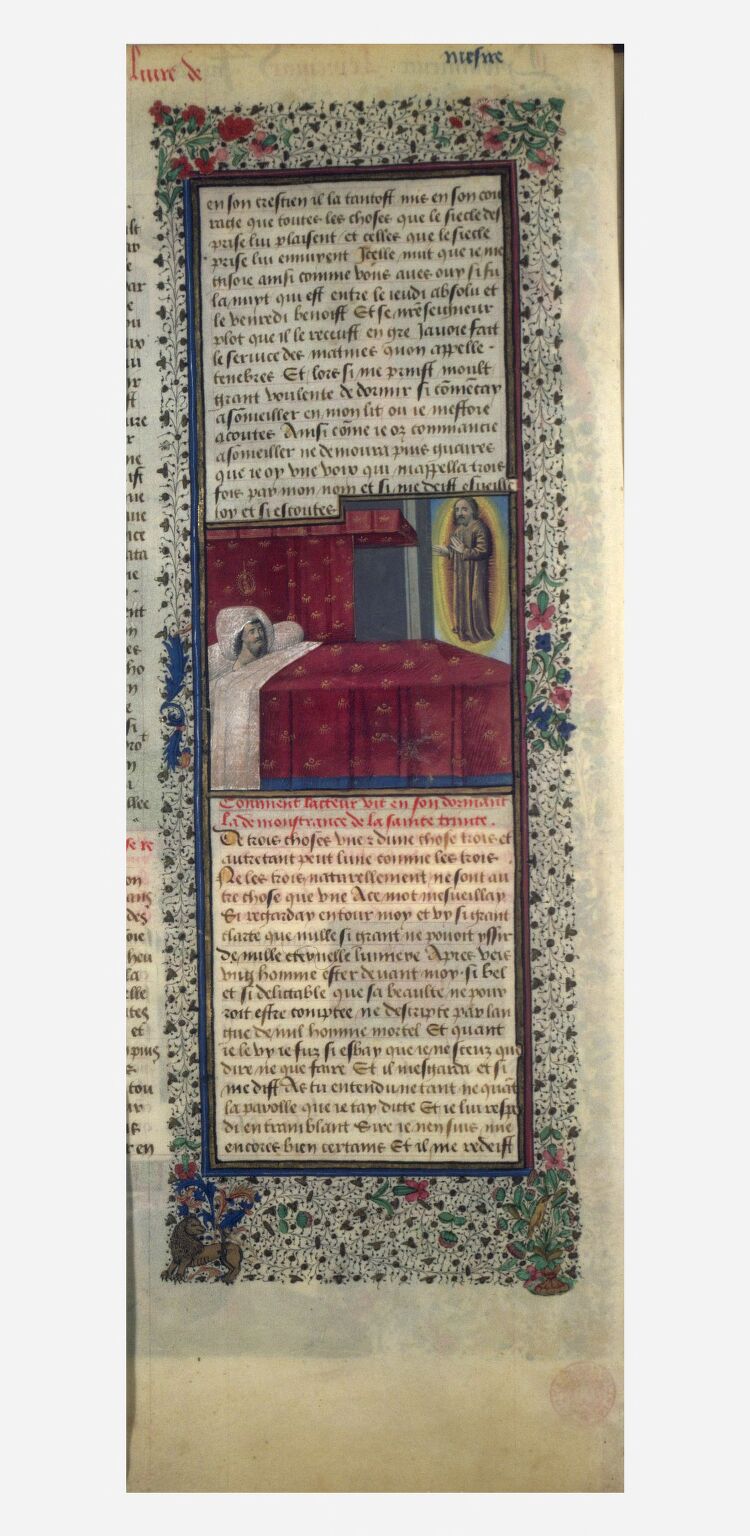 liure de
mesire
en son crestien il la tantost mis en son cou
rage que toutes les choses que le siecle des
prise lui plaisent et celles que le siecle
prise lui ennuyent Icelle nuit que ie me
gisoie ainsi comme vous aues ouy si fu
la nuyt qui est entre le ieudi absolu et
le venredi benoist Et se nre seigneur
plot que il le receust en gre Iauoie fait
le seruice des matines quon appelle
tenebres Et lors si me prinst moult
grant voulente de dormir si comencay
a someiller en mon lit ou ie mestoie
acoutes Ainsi come ie oz commancie
a someiller ne demoura puis guaires
que ie oy vne voix qui mappella trois
fois par mon nom et si me deist esueille
toy et si escoutes
Comment lacteur vit en son dormant
la demonstrance de la sainte trinite
De trois choses vne z dune chose trois et
autretant peut lune comme les trois
Ne les trois naturellement ne sont au
tre chose que vne A ce mot mesueillay
Si regarday entour moy et vy si grant
clarte que nulle si grant ne pouoit yssir
de nulle eternelle lumiere Apres veis
vng homme ester deuant moy si bel
et si delittable que sa beaulte ne pour
roit estre comptee ne descripte par lan
gue de nul homme mortel Et quant
ie le vy ie fuz si esbay que ie ne sceuz que
dire ne que faire Et il mesgarda et si
me dist As tu entendu ne tant ne quant
la parolle que ie tay dicte Et ie lui respo
di en tramblant Sire ie nen suis mie
encores bien certains Et il me redeist